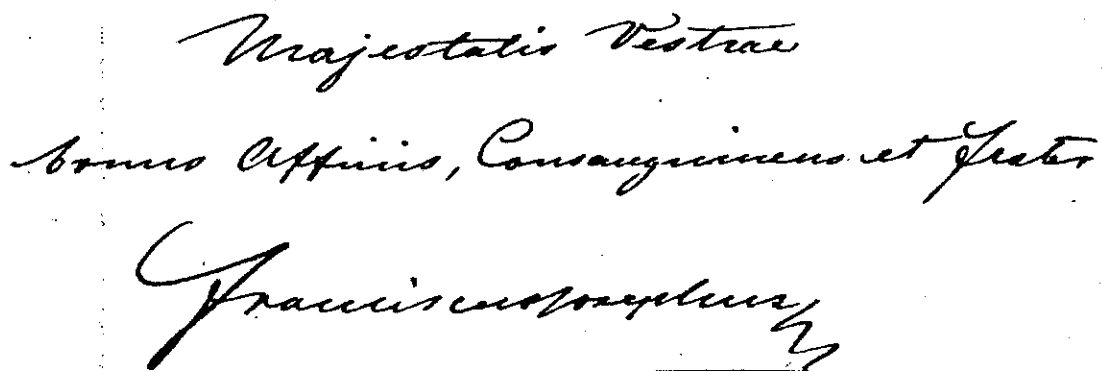 Majestatis Vestrae
bonus Affinis, Consanguineus et Frater
Franciscus Josephus